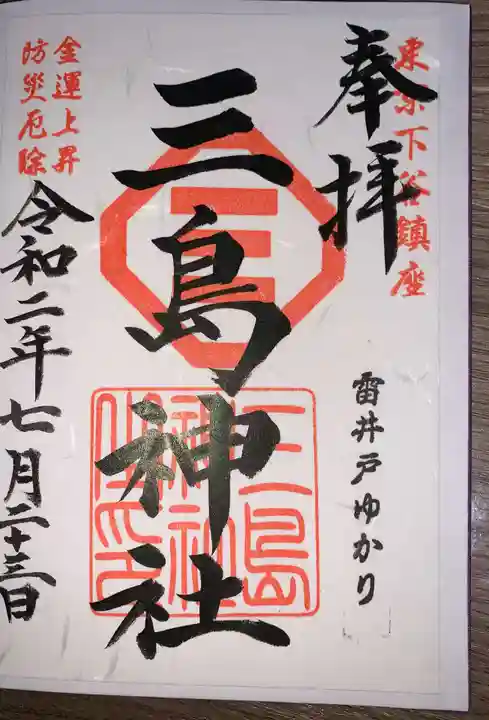 東京下谷鎮座
奉拝
雷井戸ゆかり
三島神社
三島神社
金運上昇
防災厄除
令和二年七月二十三日